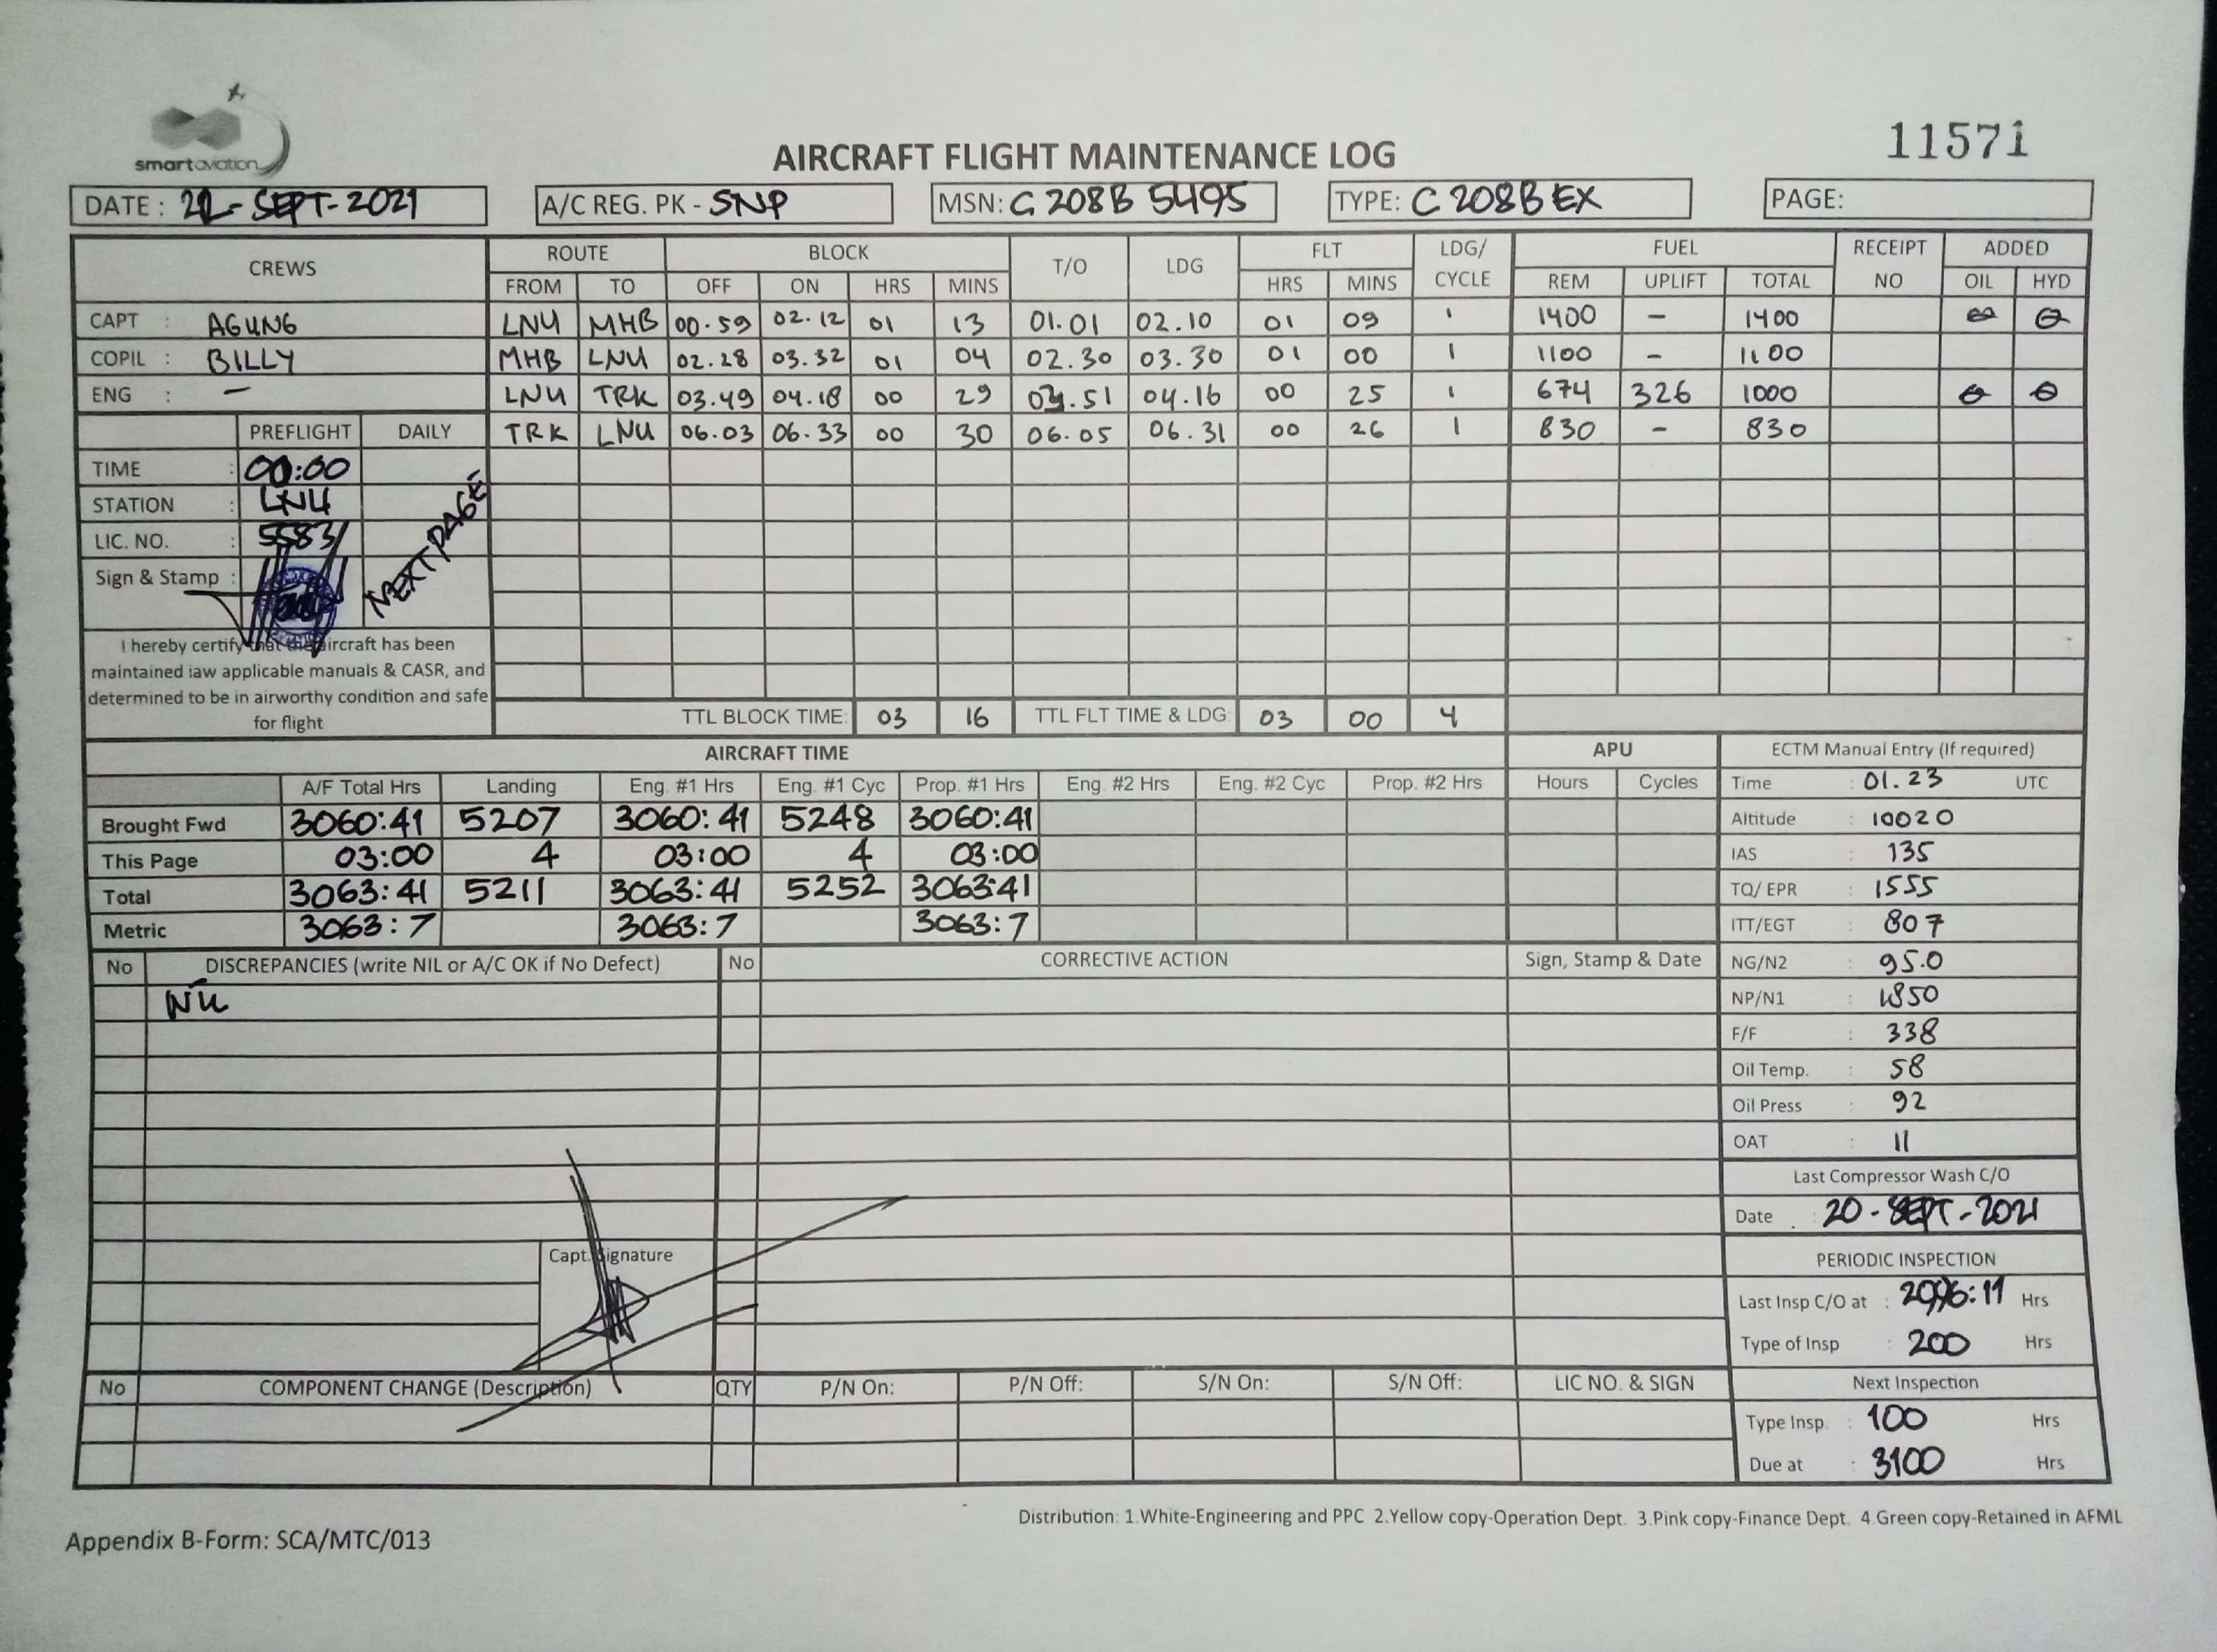 smartaviation
11571
AIRCRAFT FLIGHT MAINTENANCE LOG
DATE : SEPT-2021 A/C REG. PK - SNP MSN: C 208B 5495 TYPE: C 208B EX PAGE:
CREWS ROUTE BLOCK T/O LDG FLT LDG/ CYCLE FUEL RECEIPT NO ADDED
FROM TO OFF ON HRS MINS HRS MINS REM UPLIFT TOTAL OIL HYD
CAPT : AGUNG LNU MHB 00.59 02.12 01 13 01.01 02.10 01 09 1 1400 - 1400
COPIL : BILLY MHB LNU 02.28 03.32 01 04 02.30 03.30 01 00 1 1100 - 1100
ENG : - LNU TRK 03.49 04.18 00 29 03.51 04.16 00 25 1 674 326 1000
PREFLIGHT DAILY TRK LNU 06.03 06.33 00 30 06.05 06.31 00 26 1 830 - 830
TIME : 00:00
STATION : LNU
LIC. NO. : 5583
Sign & Stamp :
NEXT PAGE
I hereby certify that the aircraft has been
maintained iaw applicable manuals & CASR, and
determined to be in airworthy condition and safe
for flight
TTL BLOCK TIME: 03 16 TTL FLT TIME & LDG 03 00 4
AIRCRAFT TIME APU ECTM Manual Entry (If required)
A/F Total Hrs Landing Eng. #1 Hrs Eng. #1 Cyc Prop. #1 Hrs Eng. #2 Hrs Eng. #2 Cyc Prop. #2 Hrs Hours Cycles Time : 01.23 UTC
Brought Fwd 3060:41 5207 3060:41 5248 3060:41 Altitude : 10020
This Page 03:00 4 03:00 4 03:00 IAS : 135
Total 3063:41 5211 3063:41 5252 3063:41 TQ/ EPR : 1555
Metric 3063:7 3063:7 3063:7 ITT/EGT : 807
No DISCREPANCIES (write NIL or A/C OK if No Defect) No CORRECTIVE ACTION Sign, Stamp & Date NG/N2 : 95.0
NIL NP/N1 : 1850
F/F : 338
Oil Temp. : 58
Oil Press : 92
OAT : 11
Last Compressor Wash C/O
Date : 20-SEPT-2021
Capt. Signature
PERIODIC INSPECTION
Last Insp C/O at : Hrs
Type of Insp : 200 Hrs
No COMPONENT CHANGE (Description) QTY P/N On: P/N Off: S/N On: S/N Off: LIC NO. & SIGN Next Inspection
Type Insp. : 100 Hrs
Due at : 3100 Hrs
Distribution: 1.White-Engineering and PPC 2.Yellow copy-Operation Dept. 3.Pink copy-Finance Dept. 4.Green copy-Retained in AFML
Appendix B-Form: SCA/MTC/013